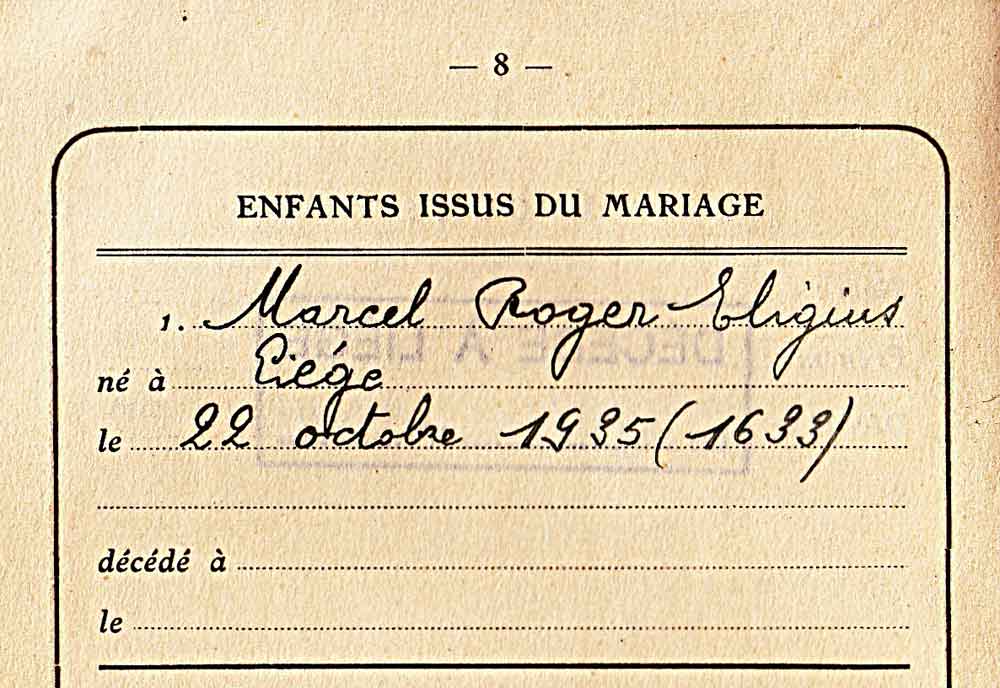 — 8 —
ENFANTS ISSUS DU MARIAGE
1. Marcel Roger Eligius
né à Liége
le 22 octobre 1935 (1633)
décédé à
le